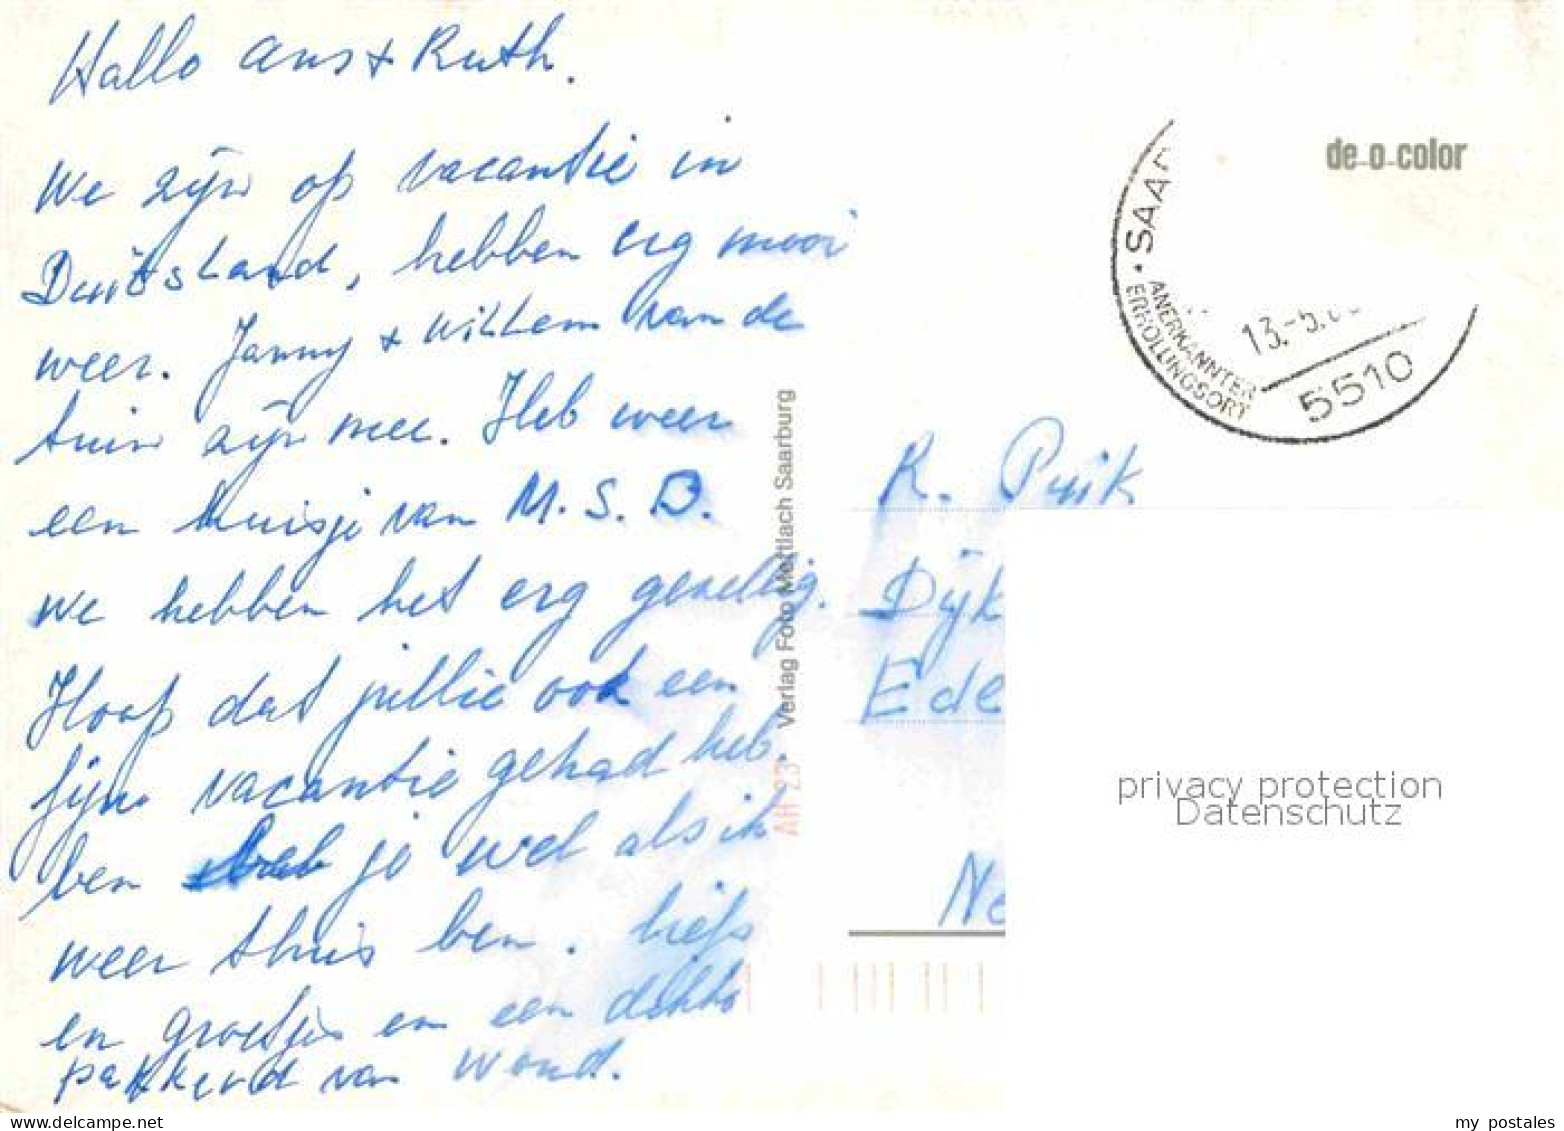 Hallo Ans + Ruth.
We zijn op vacantie in
Duitsland, hebben erg mooi
weer. Janny + Willem van de
tuin zijn mee. Heb weer
een huisje van M.S.B.
we hebben het erg gezellig.
Hoop dat jullie ook een
fijne vacantie gehad heb.
ben bel je wel als ik
weer thuis ben. liefs
en groetjes en een dikke
pakkerd van
Verlag Foto Mettlach Saarburg
AH 23
de-o-color
SAAR
ANERKANNTER
ERHOLUNGSORT
13.-5.
5510
R. Puik
Dijk
Ede
Ne
privacy protection
Datenschutz
delcampe.net
my_postales